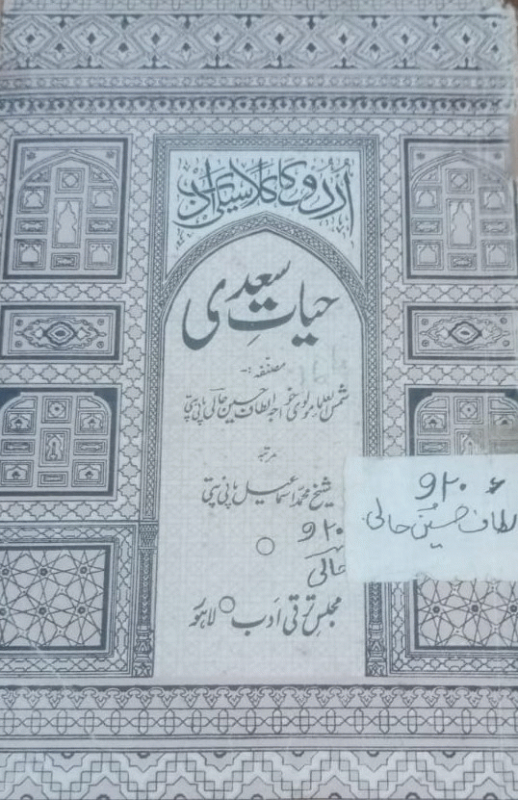 اردو کا کلاسیکی ادب
حیاتِ سعدی
مصنفہ :-
شمس العلما مولوی خواجہ الطاف حسین حالی پانی پتی
مرتبہ
شیخ محمد اسماعیل پانی پتی
۹۲۰
حالی
مجلس ترقی ادب لاہور
۹۲۰ ء
الطاف حسین حالی